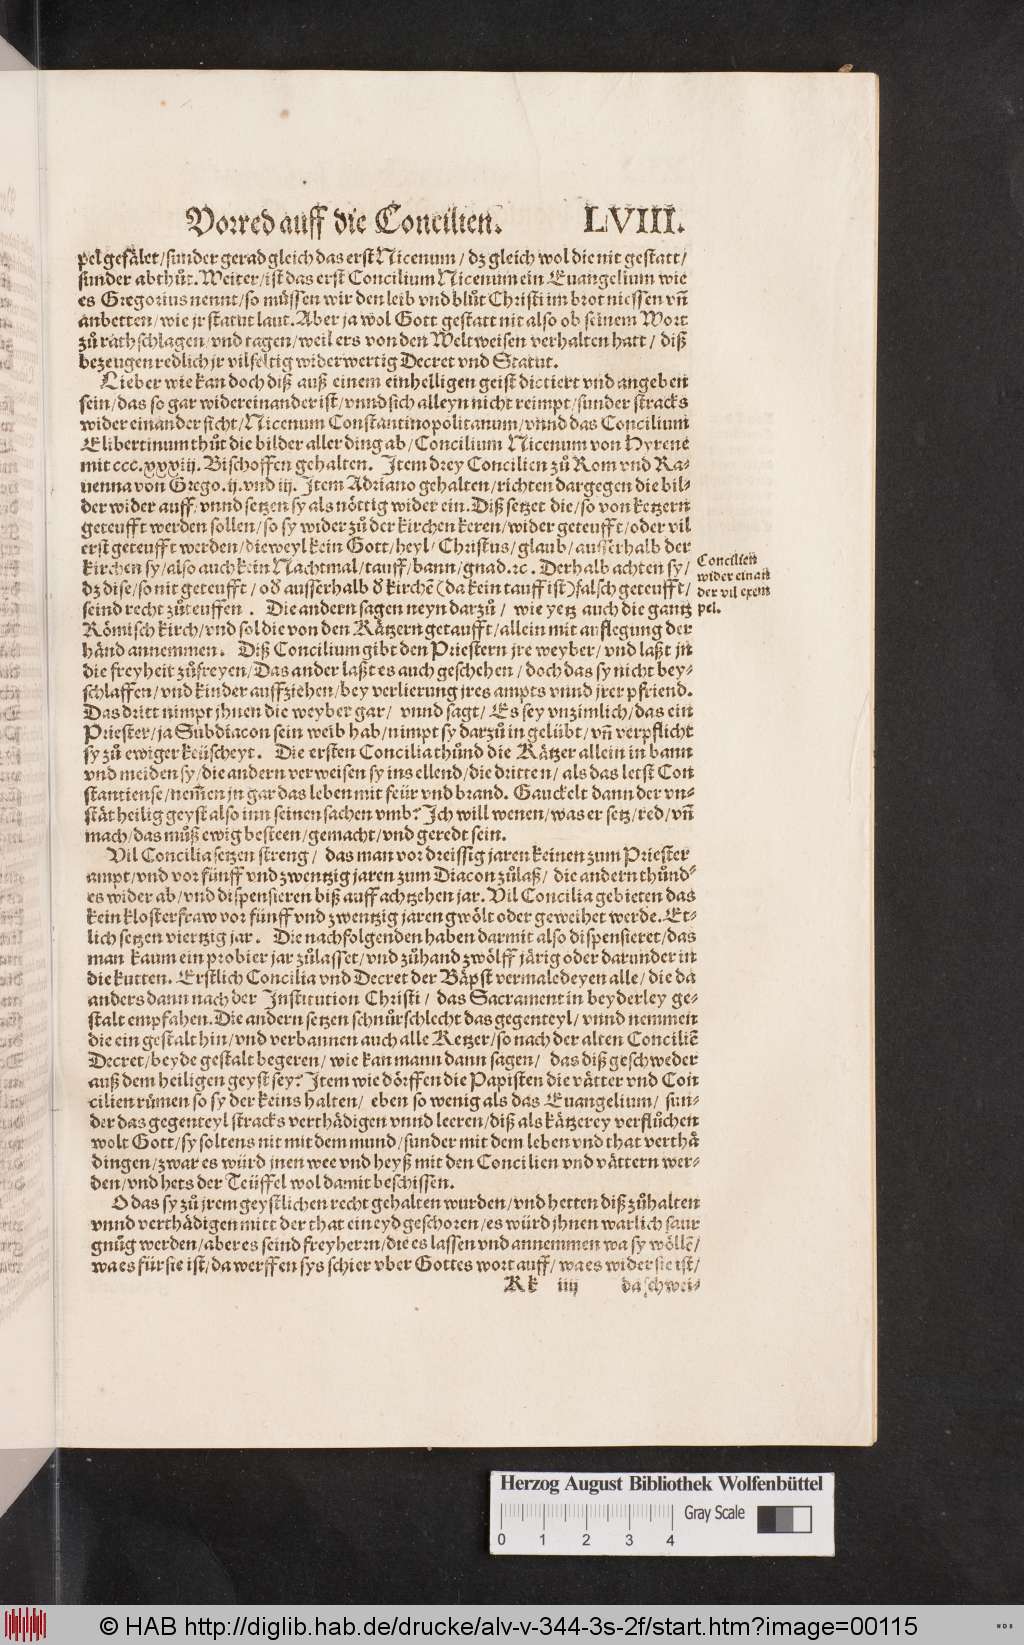 Vorred auff die Concilien. LVIII.
pel gefälet/sunder gerad gleich das erst Nicenum/ dz gleich wol die nit gestatt/
sunder abthůt. Weiter/ist das erst Concilium Nicenum ein Euangelium wie
es Gregorius nennt/so müssen wir den leib vnd blůt Christi im brot niessen vñ
anbetten/wie jr statut laut. Aber ja wol Gott gestatt nit also ob seinem Wort
zů rathschlagen/vnd tagen/weil ers von den Weltweisen verhalten hatt/ diß
bezeugen redlich jr vilfeltig widerwertig Decret vnd Statut.
Lieber wie kan doch diß auß einem einhelligen geist dictiert vnd angeben
sein/das so gar widereinander ist/vnnd sich alleyn nicht reimpt/sunder stracks
wider einander ficht/Nicenum Constantinopolitanum/vnnd das Concilium
Elibertinum thůt die bilder aller ding ab/Concilium Nicenum von Hyrene
mit ccc.xxxiij. Bischoffen gehalten. Item drey Concilien zů Rom vnd Ra-
uenna von Grego.ij.vnd iij. Item Adriano gehalten/richten dargegen die bil-
der wider auff/vnnd setzen sy als nöttig wider ein. Diß setzet die/so von ketzern
geteufft werden sollen/so sy wider zů der kirchen keren/wider geteufft/oder vil
erst geteufft werden/dieweyl kein Gott/heyl/Christus/glaub/ausserhalb der
kirchen sy/also auch kein Nachtmal/tauff/bann/gnad.ꝛc. Derhalb achten sy/
dz dise/so nit geteufft/ od̕ ausserhalb d̕ kirchẽ (da kein tauff ist) falsch geteufft/
seind recht zůteuffen. Die andern sagen neyn darzů/ wie yetz auch die gantz
Römisch kirch/vnd sol die von den Kätzern getaufft/allein mit auflegung der
händ annemmen. Diß Concilium gibt den Priestern jre weyber/vnd laßt jn
die freyheit zůfreyen/Das ander laßt es auch geschehen/doch das sy nicht bey-
schlaffen/vnd kinder auffziehen/bey verlierung jres ampts vnnd jrer pfriend.
Das dritt nimpt jhnen die weyber gar/ vnnd sagt/ Es sey vnzimlich/das ein
Priester/ja Subdiacon sein weib hab/nimpt sy darzů in gelübt/vñ verpflicht
sy zů ewiger keüscheyt. Die ersten Concilia thůnd die Kätzer allein in bann
vnd meiden sy/die andern verweisen sy ins ellend/die dritten/ als das letst Con
stantiense/nem̃en jn gar das leben mit feür vnd brand. Gauckelt dann der vn-
stät heilig geyst also inn seinen sachen vmb? Ich will wenen/was er setz/red/vñ
mach/das můß ewig besteen/gemacht/vnd geredt sein.
Vil Concilia setzen streng/ das man vor dreissig jaren keinen zum Priester
ampt/vnd vor fünff vnd zwentzig jaren zum Diacon zůlaß/ die andern thůnd
es wider ab/vnd dispensieren biß auff achtzehen jar. Vil Concilia gebieten das
kein klosterfraw vor fünff vnd zwentzig jaren gwölt oder geweihet werde. Et-
lich setzen viertzig jar. Die nachfolgenden haben darmit also dispensieret/das
man kaum ein probier jar zůlasset/vnd zůhand zwölff järig oder darunder in
die kutten. Erstlich Concilia vnd Decret der Bäpst vermaledeyen alle/die da
anders dann nach der Institution Christi/ das Sacrament in beyderley ge-
stalt empfahen. Die andern setzen schnůrschlecht das gegenteyl/vnnd nemmen
die ein gestalt hin/vnd verbannen auch alle Ketzer/so nach der alten Conciliẽ
Decret/beyde gestalt begeren/ wie kan mann dann sagen/ das diß geschweder
auß dem heiligen geyst sey? Item wie dörffen die Papisten die vätter vnd Con
cilien růmen so sy der keins halten/ eben so wenig als das Euangelium/ sun-
der das gegenteyl stracks verthädigen vnnd leeren/diß als kätzerey verflůchen
wolt Gott/sy soltens nit mit dem mund/sunder mit dem leben vnd that verthä
dingen/zwar es würd jnen wee vnd heyß mit den Concilien vnd vättern wer-
den/vnd hets der Teüffel wol damit beschissen.
O das sy zů jrem geystlichen recht gehalten wurden/vnd hetten diß zůhalten
vnnd verthädigen mitt der that ein eyd geschoren/es würd jhnen warlich saur
gnůg werden/aber es seind freyherrn/die es lassen vnd annemmen wa sy wöllẽ/
wa es für sie ist/da werffen sys schier vber Gottes wort auff/wa es wider sie ist/
Kk iiij da schwei-
Concilien
wider einan
der vil exem
pel.
Herzog August Bibliothek Wolfenbüttel
Gray Scale
0 1 2 3 4
© HAB http://diglib.hab.de/drucke/alv-v-344-3s-2f/start.htm?image=00115